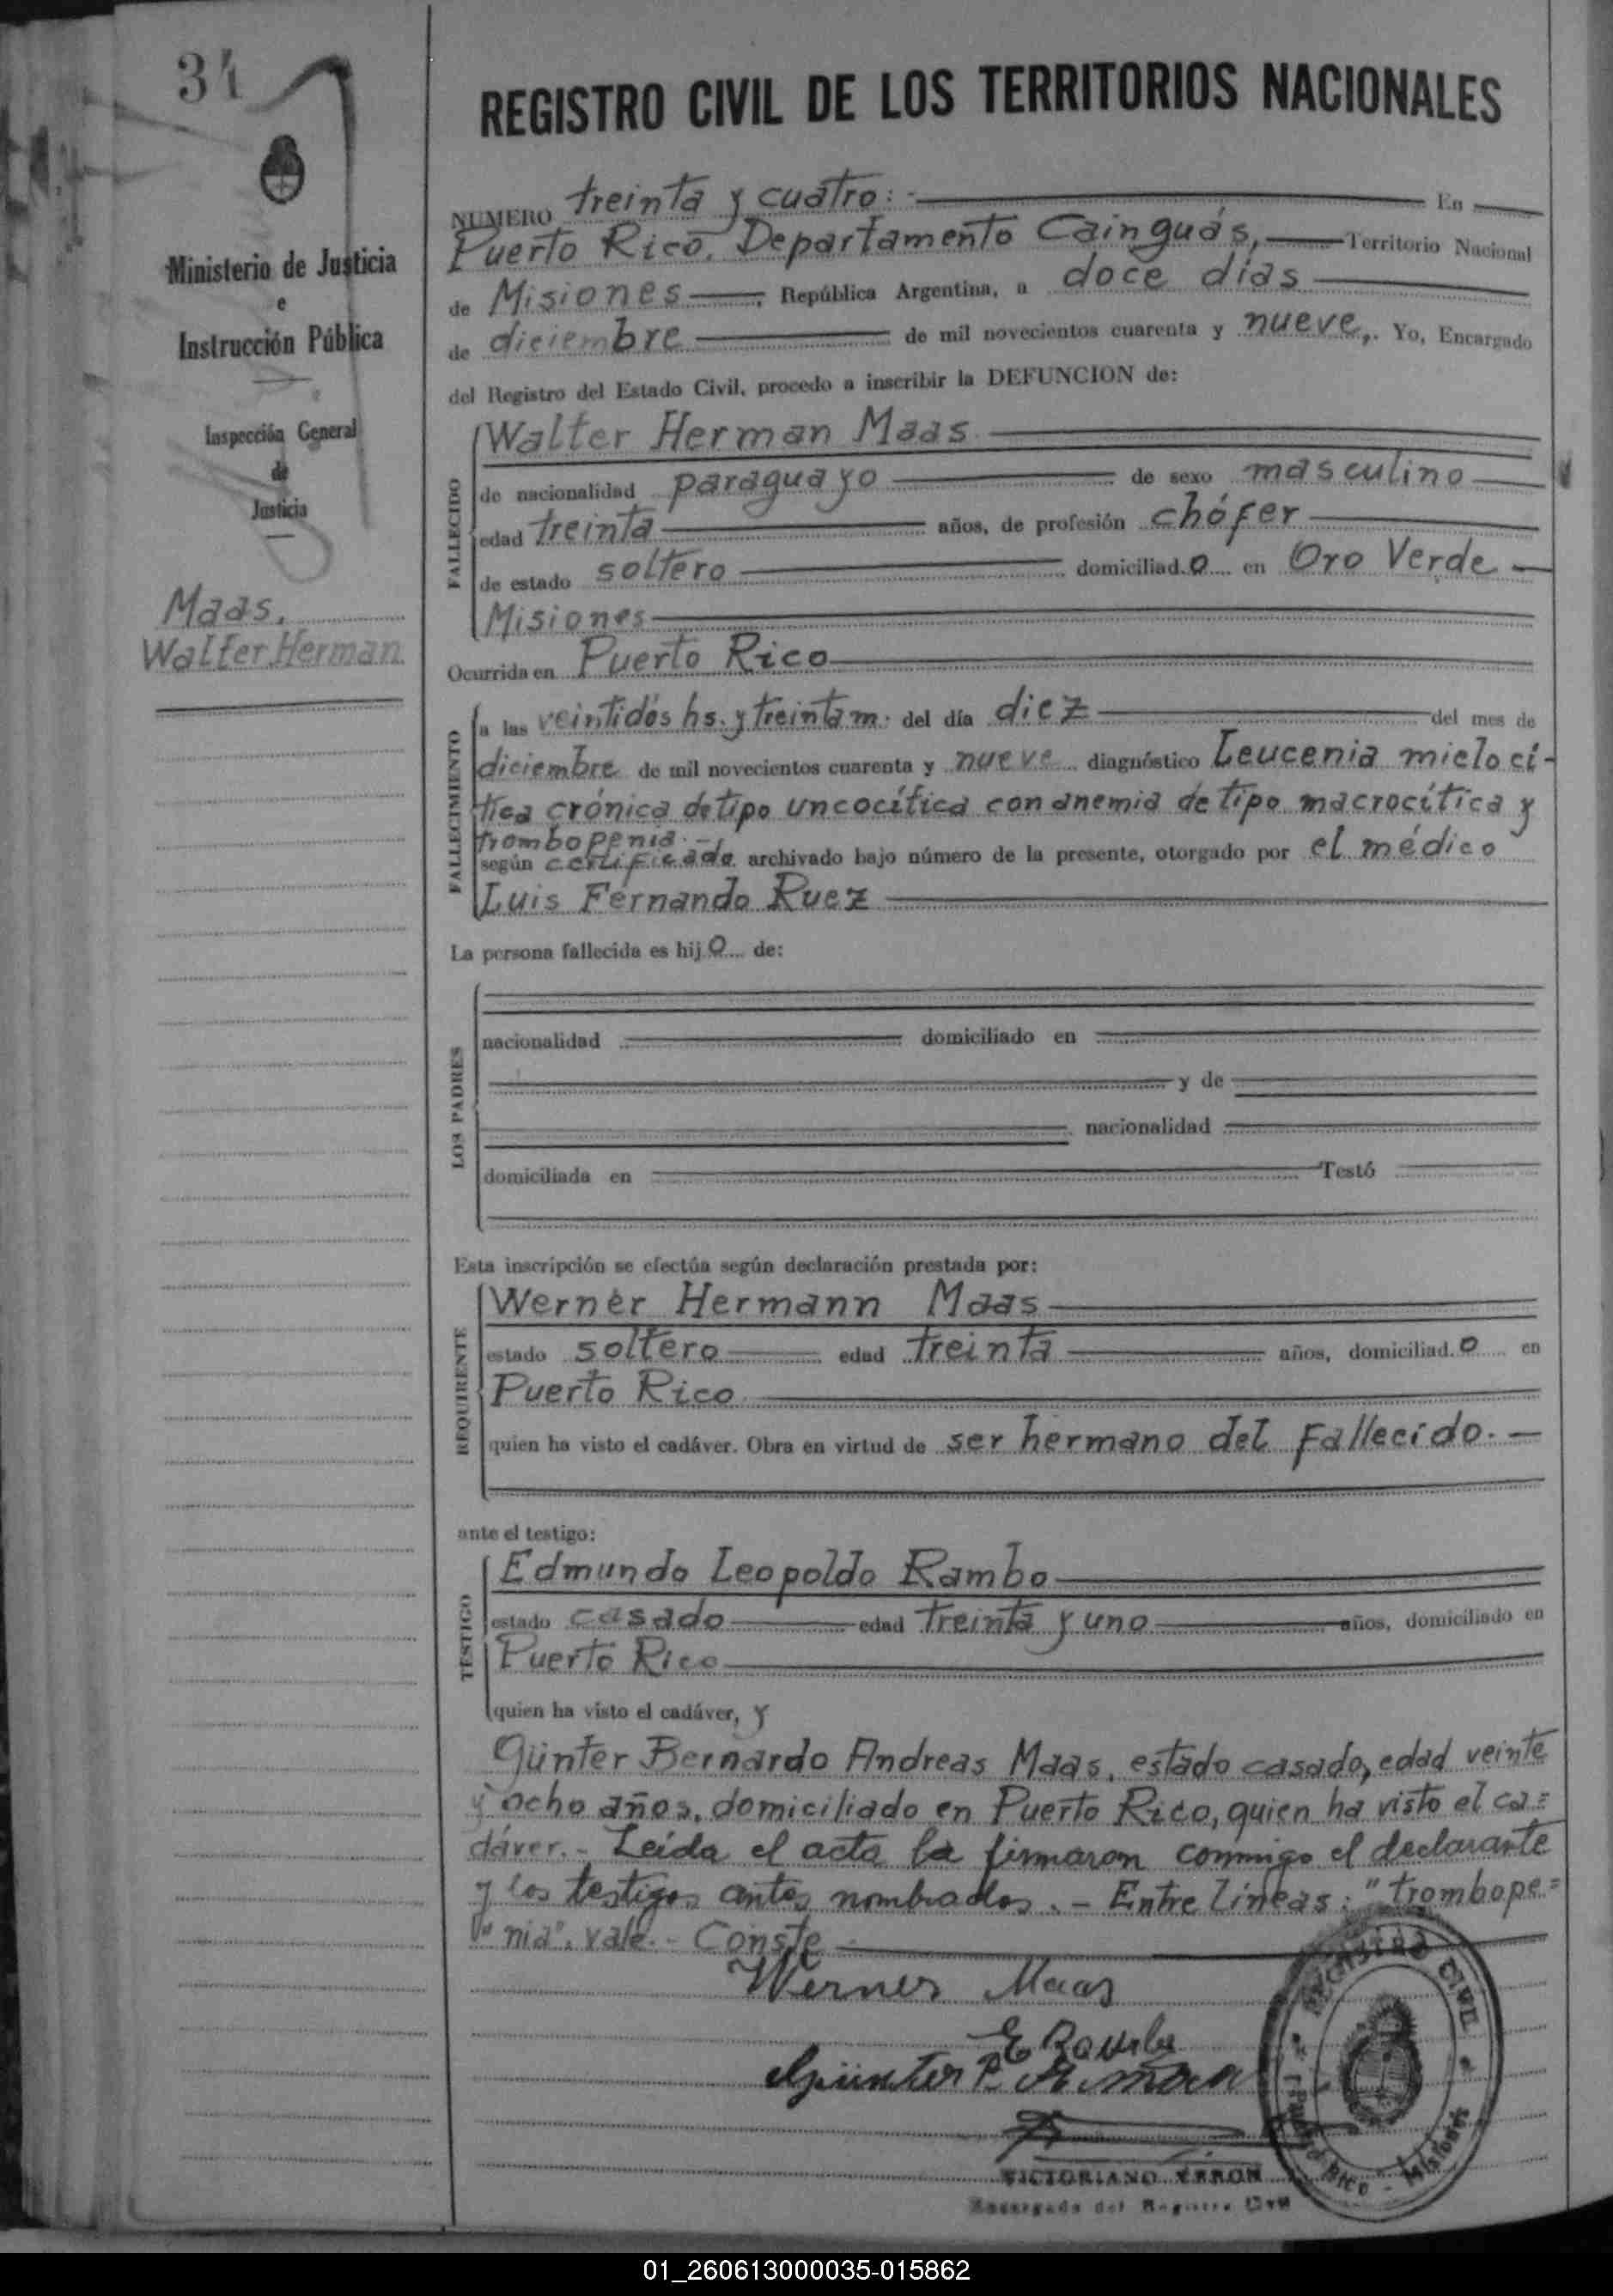 34
Ministerio de Justicia
e
Instrucción Pública
Inspección General
de
Justicia
Maas,
Walter Herman
REGISTRO CIVIL DE LOS TERRITORIOS NACIONALES
NUMERO treinta y cuatro: En
Puerto Rico, Departamento Cainguás, Territorio Nacional
de Misiones, República Argentina, a doce días
de diciembre de mil novecientos cuarenta y nueve, Yo, Encargado
del Registro del Estado Civil, procedo a inscribir la DEFUNCION de:
FALLECIDO
Walter Herman Maas
de nacionalidad paraguayo de sexo masculino
edad treinta años, de profesión chófer
de estado soltero domiciliado en Oro Verde
Misiones
Ocurrida en Puerto Rico
FALLECIMIENTO
a las veintidós hs. y treinta m. del día diez del mes de
diciembre de mil novecientos cuarenta y nueve diagnóstico Leucenia mielocí-
tica crónica de tipo uncocítica con anemia de tipo macrocítica y
trombopenia.-
según certificado archivado bajo número de la presente, otorgado por el médico
Luis Fernando Ruez
La persona fallecida es hijo de:
LOS PADRES
nacionalidad domiciliado en
y de
nacionalidad
domiciliada en Testó
Esta inscripción se efectúa según declaración prestada por:
REQUIRENTE
Werner Hermann Maas
estado soltero edad treinta años, domiciliado en
Puerto Rico
quien ha visto el cadáver. Obra en virtud de ser hermano del fallecido.-
ante el testigo:
TESTIGO
Edmundo Leopoldo Rambo
estado casado edad treinta y uno años, domiciliado en
Puerto Rico
quien ha visto el cadáver, y
Günter Bernardo Andreas Maas, estado casado, edad veinte
y ocho años, domiciliado en Puerto Rico, quien ha visto el ca=
dáver.- Leída el acta la firmaron conmigo el declarante
y los testigos antes nombrados.- Entre líneas: "trombope=
"nia". vale.- Conste
Werner Maas
E Rambo
Günter B. A. Maas
VICTORIANO VERON
Encargado del Registro Civil
REGISTRO CIVIL
Puerto Rico - Misiones
01_260613000035-015862